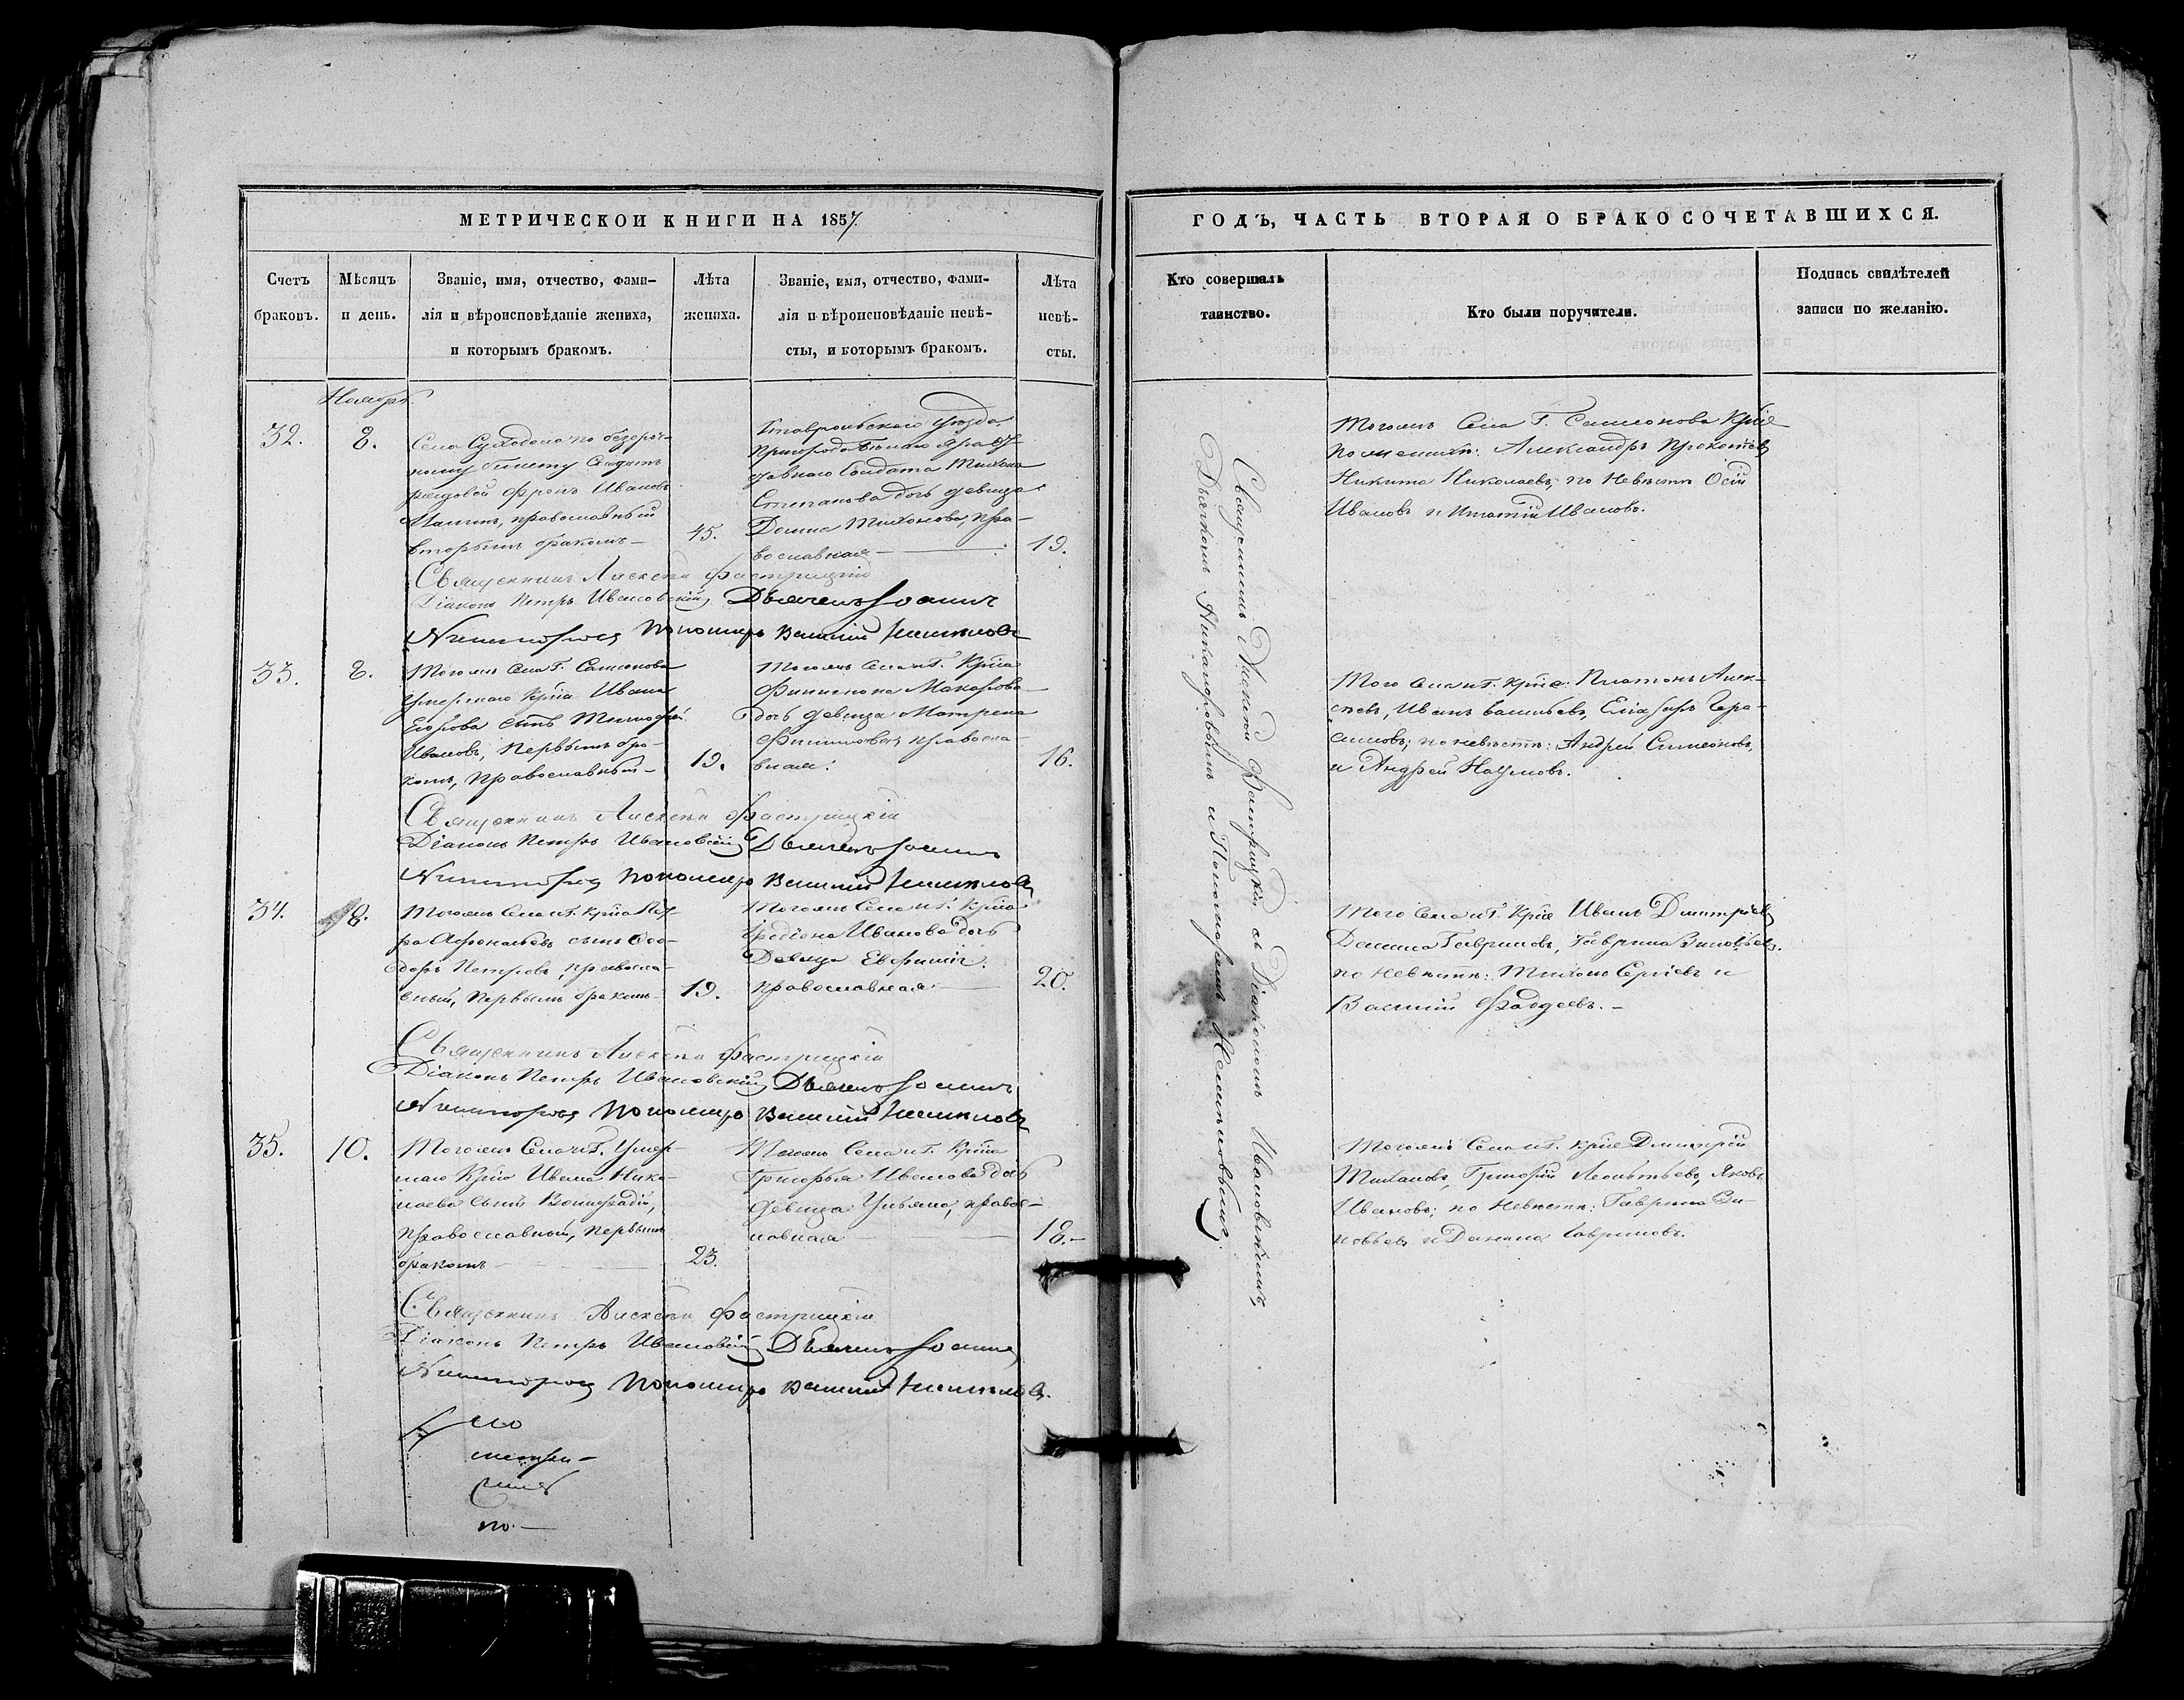 МЕТРИЧЕСКОЙ КНИГИ НА 1857.
Счетъ
браковъ.
Мѣсяцъ
и день.
Званіе, имя, отчество, фами-
лія и вѣроисповѣданіе жениха,
и которымъ бракомъ.
Лѣта
жениха.
Званіе, имя, отчество, фами-
лія и вѣроисповѣданіе невѣ-
сты, и которымъ бракомъ.
Лѣта
невѣ-
сты.
Ноябрь.
32.
8.
Села Суходола по безсроч-
ному билету Солдатъ
рядовой Фролъ Ивановъ
православный
вторымъ бракомъ
45.
Ставропольскаго уѣзда
Пригорода
Солдата Тихона
Степанова дочь девица
Домна Тихонова, пра-
вославная
19.
Священникъ Алексѣй Фастрицкій
Діаконъ Петръ Ивановскій Дьячекъ Іоаннъ
Никаноровъ Пономарь Василий
33.
8.
Тогожъ Села Г. Самсонова
умершаго Кр҃на Ивана
Егорова сынъ Тимофей
Ивановъ, первымъ бра-
комъ, православный
19.
Тогожъ Села и Г. Кр҃на
Филимона Макарова
дочь девица Матрена
Филимонова, правосла-
вная.
16.
Священникъ Алексѣй Фастрицкій
Діаконъ Петръ Ивановскій Дьячекъ Іоаннъ
Никаноровъ Пономарь Василий
34.
8.
Тогожъ Села и Г. Кр҃на Пет-
ра Афонасьева сынъ Фео-
доръ Петровъ, правосла-
вный, первымъ бракомъ
19.
Тогожъ Села и Г. Кр҃на
Родіона Иванова дочь
Девица Евфимія
православная
20.
Священникъ Алексѣй Фастрицкій
Діаконъ Петръ Ивановскій Дьячекъ Іоаннъ
Никаноровъ Пономарь Василий
35.
10.
Тогожъ Села и Г. умер-
шаго Кр҃на Ивана Нико-
лаева сынъ
православный, первымъ
бракомъ
23.
Тогожъ Села и Г. Кр҃на
Григорья Иванова дочь
девица Ульяна, правос-
лавная
18.
Священникъ Алексѣй Фастрицкій
Діаконъ Петръ Ивановскій Дьячекъ Іоаннъ
Никаноровъ Пономарь Василий
ГОДЪ, ЧАСТЬ ВТОРАЯ О БРАКОСОЧЕТАВШИХСЯ.
Кто совершалъ
таинство.
Кто были поручители.
Подпись свидѣтелей
записи по желанію.
Священникъ Алексѣй Фастрицкій съ Діакономъ Ивановскимъ,
Дьячкомъ Никаноровымъ и Пономаремъ
Тогожъ Села Г. Самсонова Кр҃не
по женихѣ: Александръ Прокопьевъ
Никита Николаевъ, по Невѣстѣ Осипъ
Ивановъ и Игнатій Ивановъ.
Того Села и Г. Кр҃не: Платонъ Алек-
сѣевъ, Иванъ Васильевъ, Елизаръ Гера-
симовъ; по невѣстѣ: Андрей Симеоновъ,
и Андрей Наумовъ.
Того Села и Г. Кр҃не Иванъ Дмитріевъ
Данила Гавриловъ, Гаврила Зиновьевъ.
по Невѣстѣ: Тихонъ Сергіевъ и
Василій Фаддеевъ.
Тогожъ Села и Г. Кр҃не Дмитрій
Тихановъ, Григорій Леонтьевъ, Яковъ
Ивановъ; по Невѣстѣ: Гаврила Зи-
новьевъ и Данила Гавриловъ.